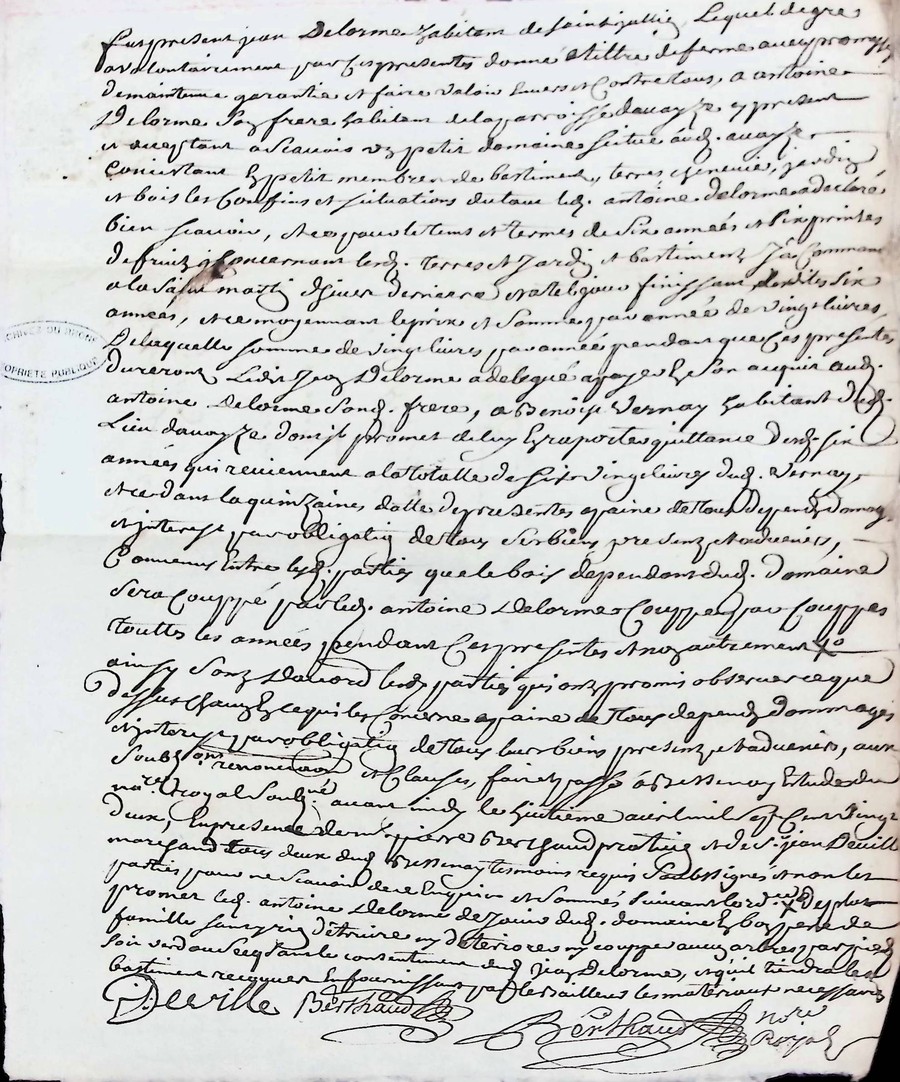 Fut present jean Delorme habitant de saint jullien Lequel de gre
a volontairement par ces presentes donné a tiltre de ferme avec promesse
de maintenue garantie et faire valoir envers et contre tous, a antoine
Delorme son frere habitant de la parroisse davayze y present
et acceptant a scavoir un petit domaine scitue aud. avayze
concistant en petit membre de bastiment, terres cheneviè, jardin
et bois les confins et situations du tout led. antoine Delorme a declaré
bien scavoir, et ce pour le tems et termes de six années et six prinses
de fruitz concernant lesd. terres et jardin et bastiment ja commancé
a la saint martin d'hiver derniere et a tel jour finissant lesdites six
années, et ce moyennant le prix et somme par année de vingt livres,
De laquelle somme de vingt livres par année pendant que ces presentes
dureront Ledit Jean Delorme a delegué a payer en son acquit aud.
antoine Delorme sond. frere, a Benoist Vernay habitant dud.
Lieu davayze dont il promet de luy en raporter quittance desd. six
années qui reviennent a la totalle de six vingt livres dud. Vernay,
et ce dans la quinzaine datte des presentes a paine de tous depens domages
et interest par obligation de tous ses biens presentz et advenirs,
Convenus entre lesd. parties que le bois dependant dud. domaine
sera couppé par led. antoine Delorme couppe par couppes
touttes les années pendant ces presentes et non autrement
ainsy sont d'accord lesd. parties qui ont promis observer ce que
dessus chacun en ce qui les concerne a paine de tous depens dommages
et interest par obligation de tous leurs biens presentz et advenirs, aux
soubz.ons renonciaon et clauses, fait et passé a Bessenay Etude du
no.re royal soub.né avant midy le huitieme avril mil sept cent vingt
deux, En presence de m.e pierre Berthaud praticien et de S.r jean Deville
marchand tous deux dud. Bessenay temoins requis soubsignes et non les
parties pour ne scavoir de ce enquis et sommés suivant lord.ce X De plus
promet led. antoine Delorme de jouir dud. domaine en bon pere de
famille sans y rien detruire ny deteriorer ny coupper aucuns arbres par pied
soit verd ou secq sans le consentement dud. jean Delorme, et qu'il tiendra led.
bastiment recouvert en fournissant par le bailleur les materiaux necessaires
J. Deville Berthaud
Berthaud no.re Royal
ARCHIVES DU RHÔNE
PROPRIÉTÉ PUBLIQUE